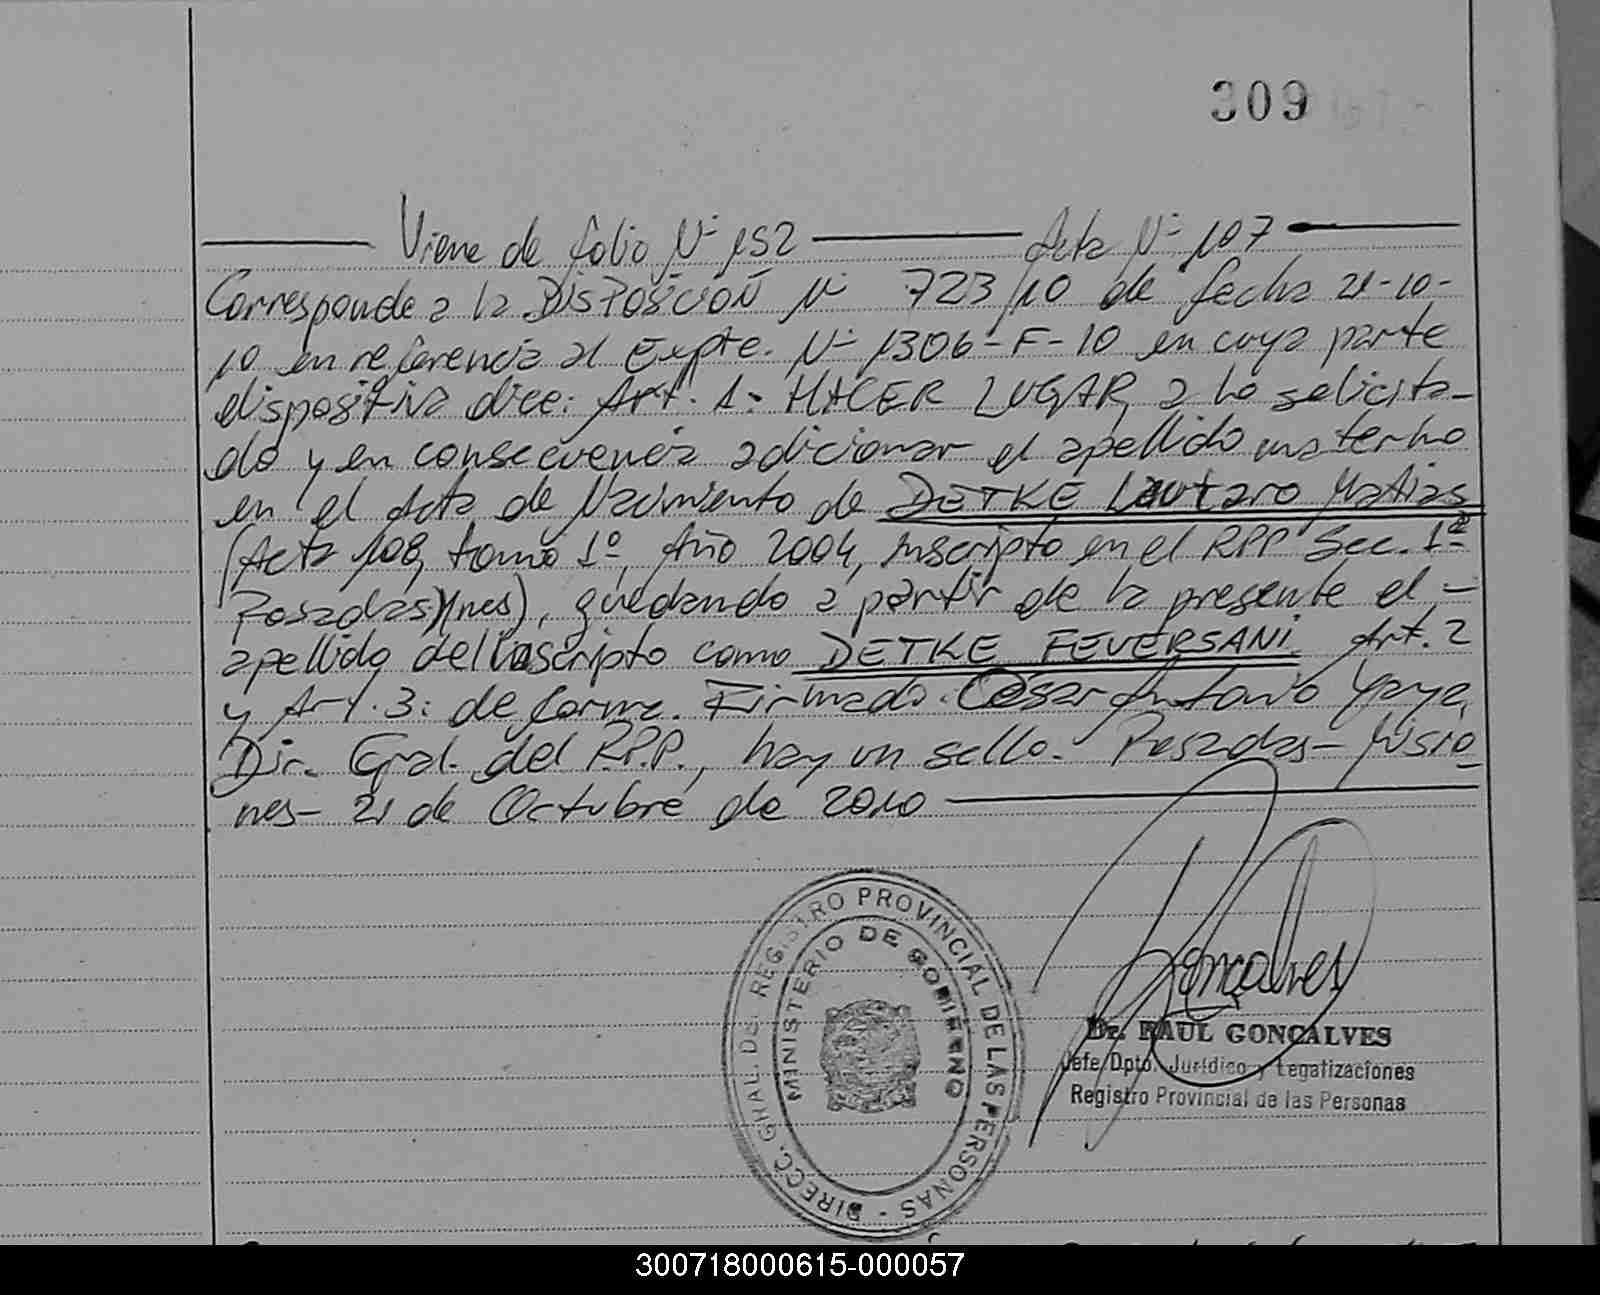 309
Viene de folio Nº 152 Acta Nº 107
Corresponde a la DISPOSICION Nº 723/10 de fecha 21-10-
10 en referencia al Expte. Nº 1306-F-10 en cuya parte
dispositiva dice: Art. 1: HACER LUGAR a lo solicita-
do y en consecuencia adicionar el apellido materno
en el Acta de Nacimiento de DETKE Lautaro Matias
(Acta 108, tomo 1º, Año 2004, inscripto en el RPP Sec. 1ª
Posadas)(nes), quedando a partir de la presente el -
apellido del inscripto como DETKE FEVERSANI. Art. 2
y Art. 3: de forma. Firmado. Cesar Antonio
Dir. Gral. del R.P.P., hay un sello. Posadas- Misio_
nes- 21 de Octubre de 2010
DIRECC. GRAL. DEL REGISTRO PROVINCIAL DE LAS PERSONAS -
MINISTERIO DE GOBIERNO
Goncalves
Dr. RAUL GONCALVES
Jefe Dpto. Jurídico y Legalizaciones
Registro Provincial de las Personas
300718000615-000057